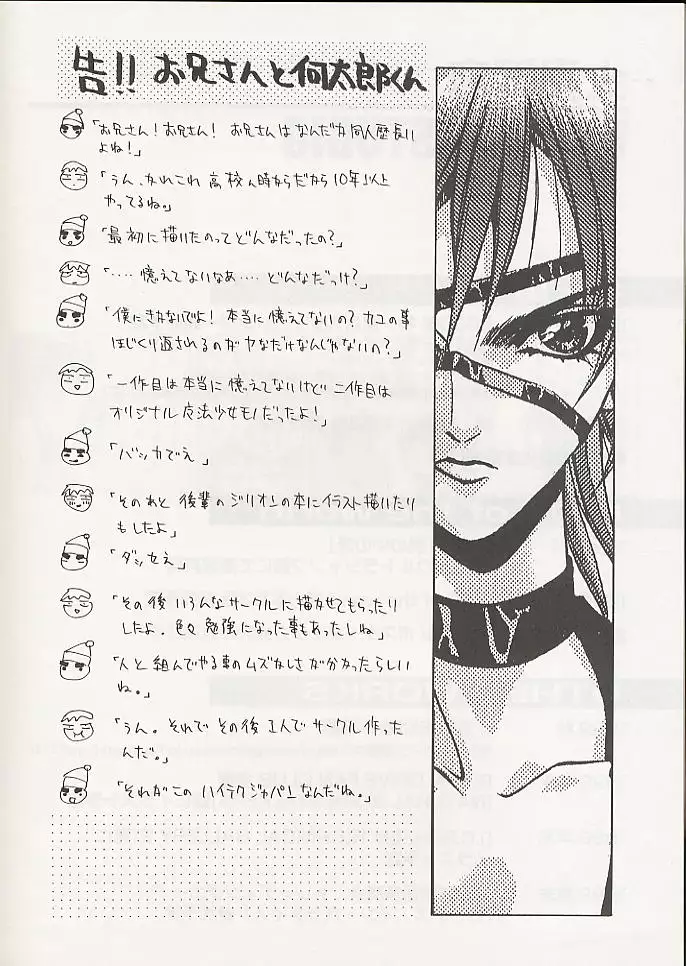 告!! お兄さんと何太郎くん
「お兄さん！お兄さん！ お兄さんはなんだか同人歴長い
よね！」
「うん、かれこれ高校ん時からだから10年以上
やってるね。」
「最初に描いたのってどんなだったの？」
「‥‥憶えてないなあ‥‥どんなだっけ？」
「僕にきかないでよ！本当に憶えてないの？カコの事
ほじくり返されるのがヤなだけなんじゃないの？」
「一作目は本当に憶えてないけど二作目は
オリジナル魔法少女モノだったよ！」
「バッカでえ」
「そのあと後輩のジリオンの本にイラスト描いたり
もしたよ」
「ダッせえ」
「その後いろんなサークルに描かせてもらったり
したよ。色々勉強になった事もあったしね」
「人と組んでやる事のムズかしさが分かったらしい
ね。」
「うん。それでその後1人でサークル作った
んだ。」
「それがこのハイテクジャパンなんだね。」